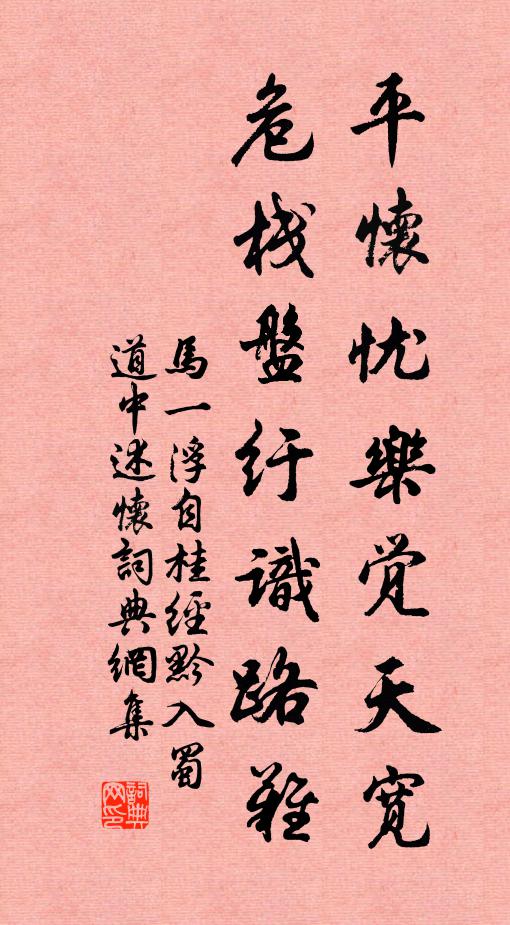 平懷忧樂觉天寬
危栈盤纡識路難
馬一浮自桂經黔入蜀
道中述懷詞典網集
詞典
网印